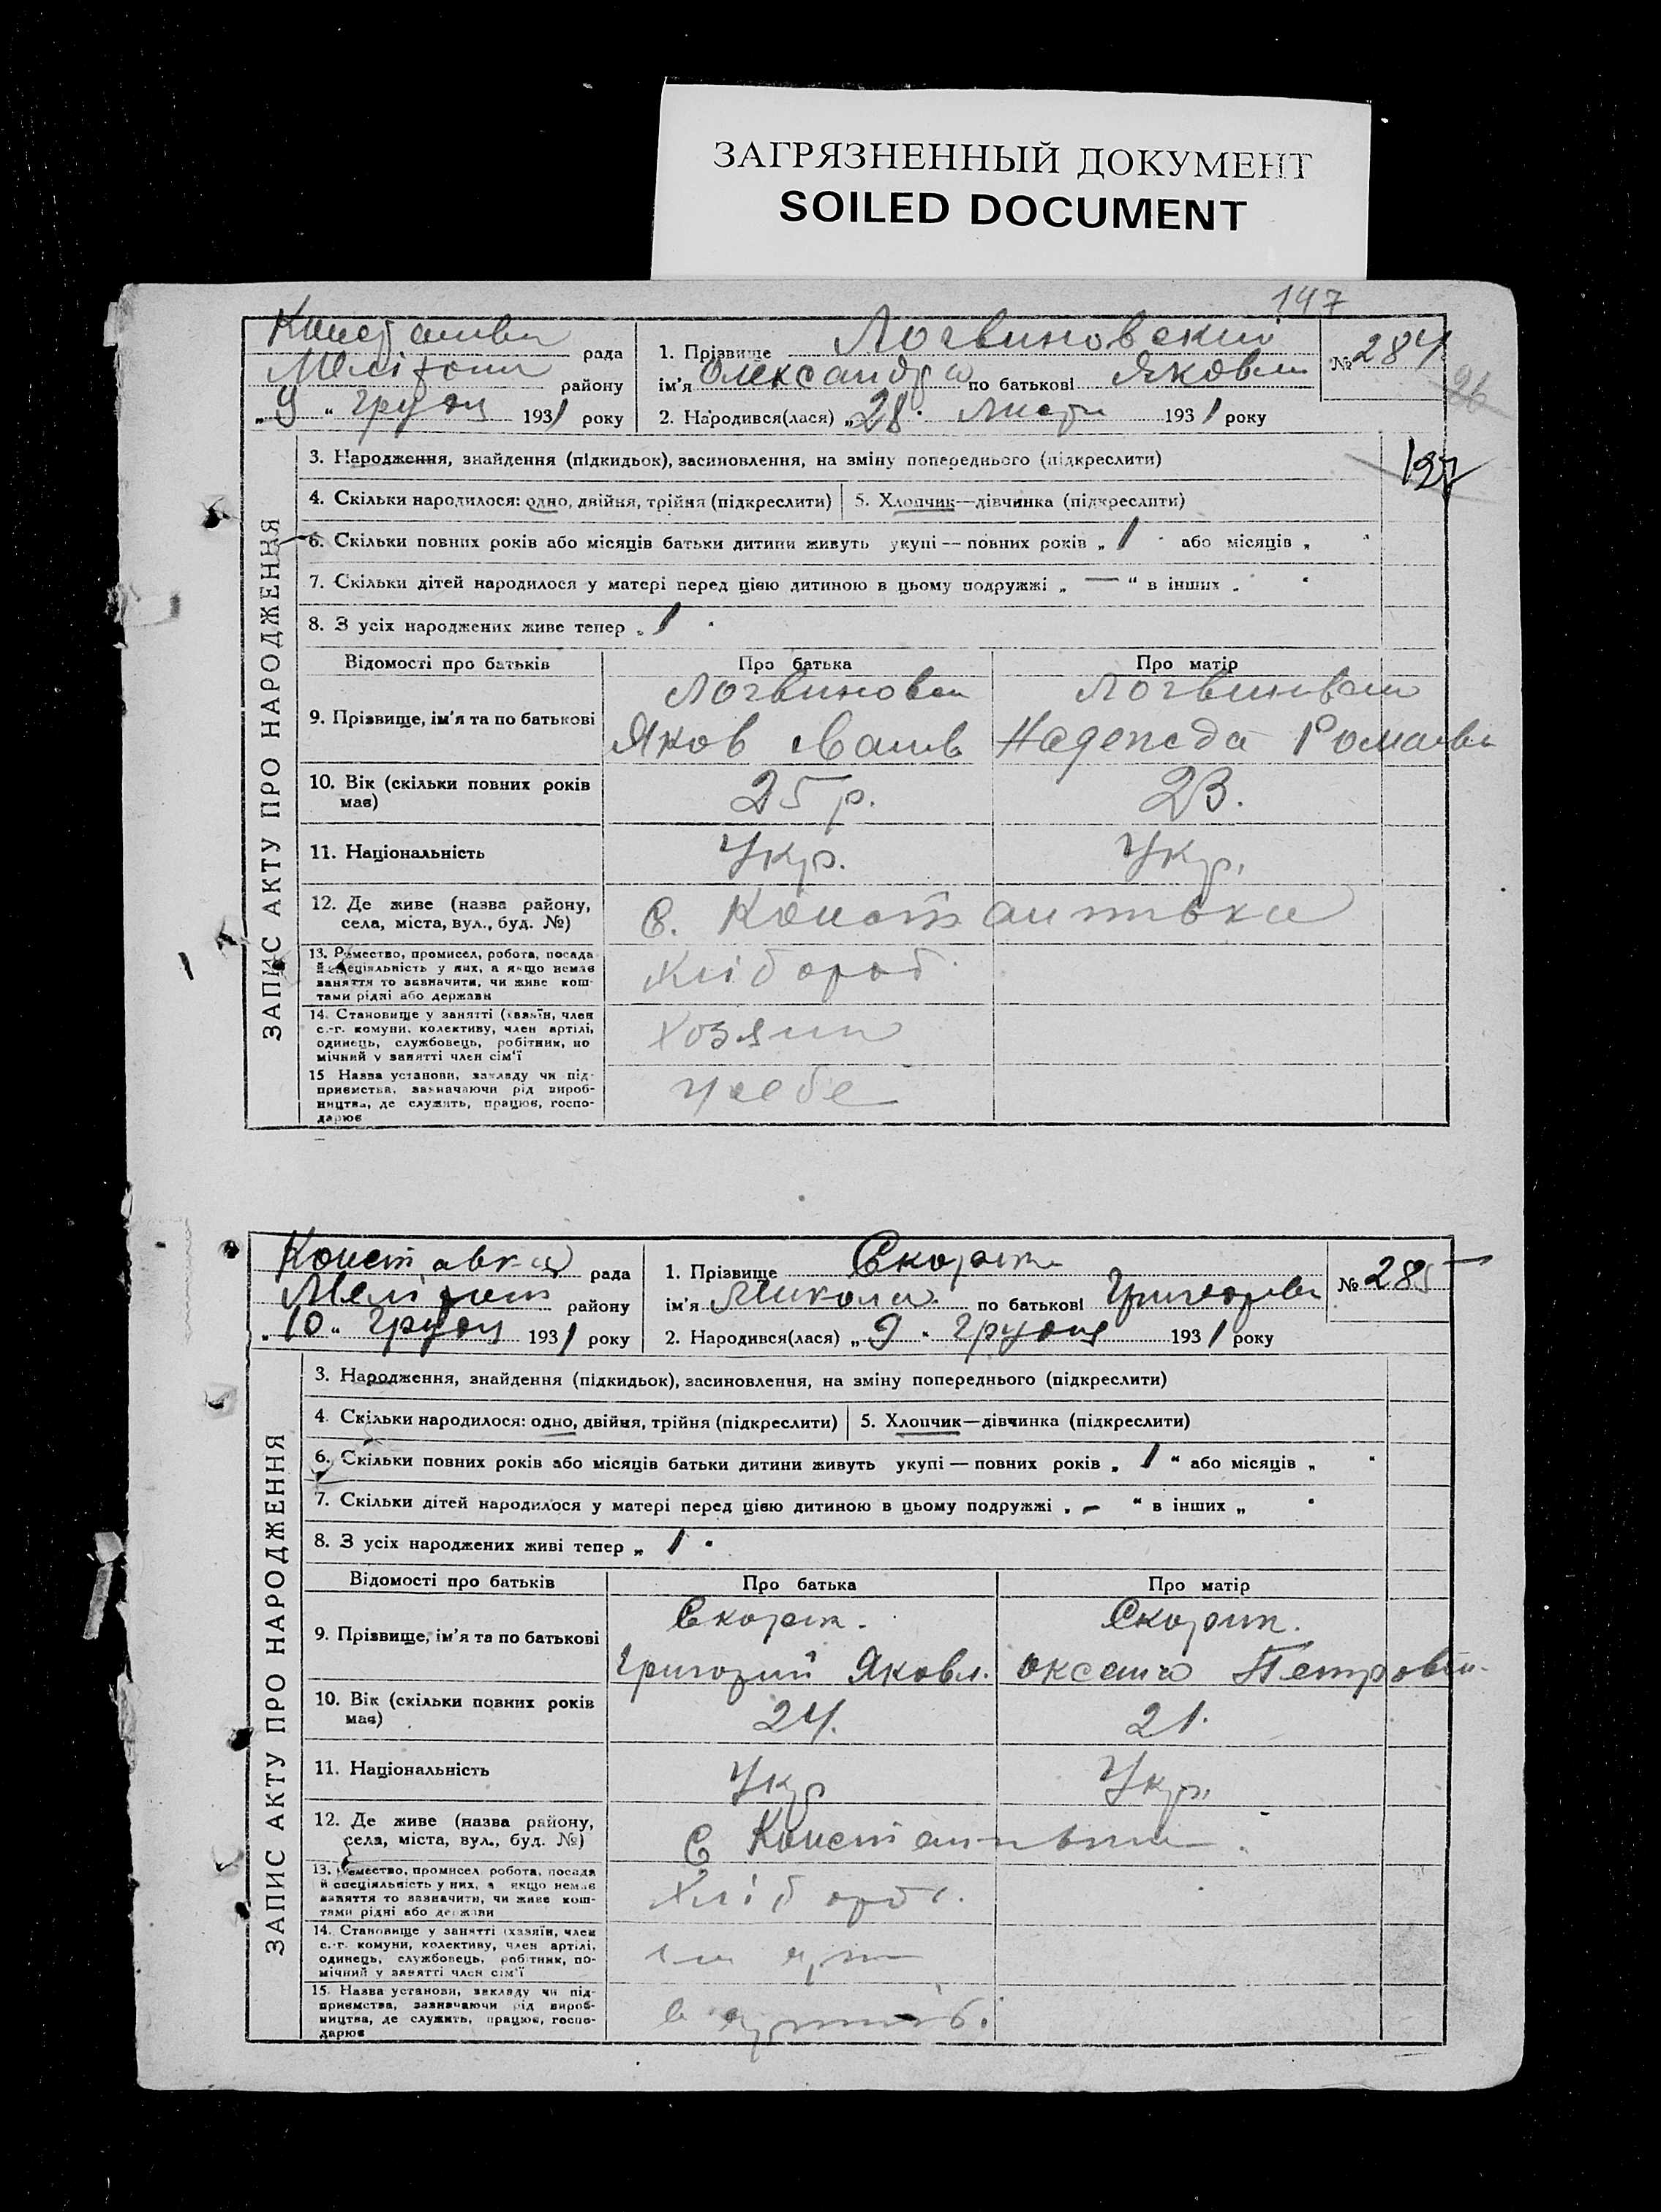 ЗАГРЯЗНЕННЫЙ ДОКУМЕНТ
SOILED DOCUMENT
147
рада
району
"9" грудн 1931 року
1. Прізвище Логвиновский
ім'я Олександр по батькові Яковл
2. Народився(лася) "28" Листп 1931 року
№ 284
26
127
ЗАПИС АКТУ ПРО НАРОДЖЕННЯ
3. Народження, знайдення (підкидьок), засиновлення, на зміну попереднього (підкреслити)
4. Скільки народилося: одно, двійня, трійня (підкреслити) 5. Хлопчик—дівчинка (підкреслити)
6. Скільки повних років або місяців батьки дитини живуть укупі — повних років „ 1 " або місяців „ "
7. Скільки дітей народилося у матері перед цією дитиною в цьому подружжі „ — " в інших „ "
8. З усіх народжених живе тепер „ 1 "
Відомості про батьків Про батька Про матір
9. Прізвище, ім'я та по батькові
Яков Роман
10. Вік (скільки повних років має) 25 р. 23.
11. Національність Укр. Укр.
12. Де живе (назва району, села, міста, вул., буд. №) С. Константовка
13. Ремество, промисел, робота, посада й спеціяльність у них, а якщо немає заняття то зазначити, чи живе коштами рідні або держави
Хлібороб
14. Становище у занятті (хазяїн, член с.-г. комуни, колективу, член артілі, одинець, службовець, робітник, помічний у занятті член сім'ї
хозяин
15 Назва установи, закладу чи підприємства, зазначаючи рід виробництва, де служить, працює, господарює
у себе
рада
району
"10" грудн 1931 року
1. Прізвище
ім'я Микола по батькові
2. Народився(лася) „9" грудня 1931 року
№ 285
ЗАПИС АКТУ ПРО НАРОДЖЕННЯ
3. Народження, знайдення (підкидьок), засиновлення, на зміну попереднього (підкреслити)
4. Скільки народилося: одно, двійня, трійня (підкреслити) 5. Хлопчик—дівчинка (підкреслити)
6. Скільки повних років або місяців батьки дитини живуть укупі — повних років „ 1 " або місяців „ "
7. Скільки дітей народилося у матері перед цією дитиною в цьому подружжі „ – " в інших „ "
8. З усіх народжених живі тепер „ 1 "
Відомості про батьків Про батька Про матір
9. Прізвище, ім'я та по батькові
Григорий Яковл. Оксана
10. Вік (скільки повних років має) 24. 21.
11. Національність Укр Укр.
12. Де живе (назва району, села, міста, вул., буд. №) С
13. Ремество, промисел робота, посада й спеціяльність у них, а якщо немає заняття то зазначити, чи живе коштами рідні або держави
14. Становище у занятті (хазяїн, член с.-г. комуни, колективу, член артілі, одинець, службовець, робітник, помічний у занятті член сім'ї
15. Назва установи, закладу чи підприємства, зазначаючи рід виробництва, де служить, працює, господарює